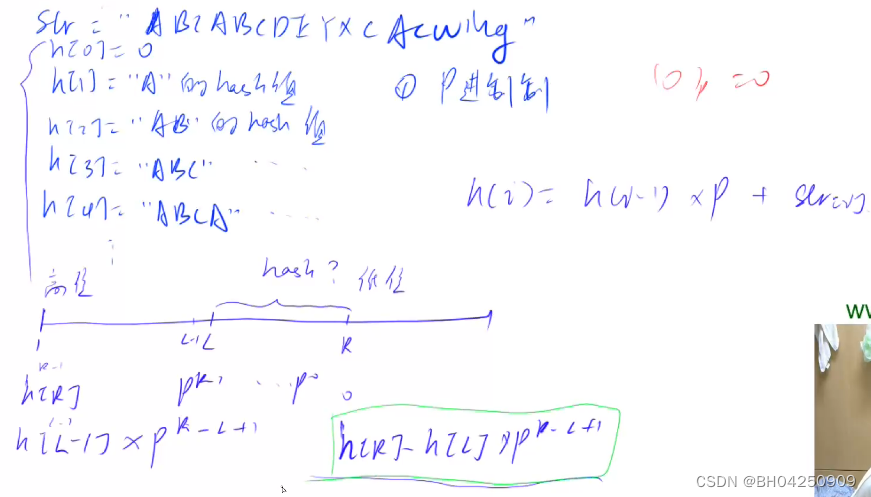 str = "ABCABCDEYXCAcwing"
h[0] = 0
h[1] = "A" 的 hash 值
h[2] = "AB" 的 hash 值
h[3] = "ABC" ....
h[4] = "ABCA" ....
① P进制
(0)p = 0
h(i) = h(i-1) × P + str[i]
hash?
高位 低位
1 L-1 L R
R-1 0
h[R] p^R-1 ... p^0
L-1 0
h[L-1] × p^R-L+1
h[R] - h[L] × p^R-L+1
CSDN @BH04250909